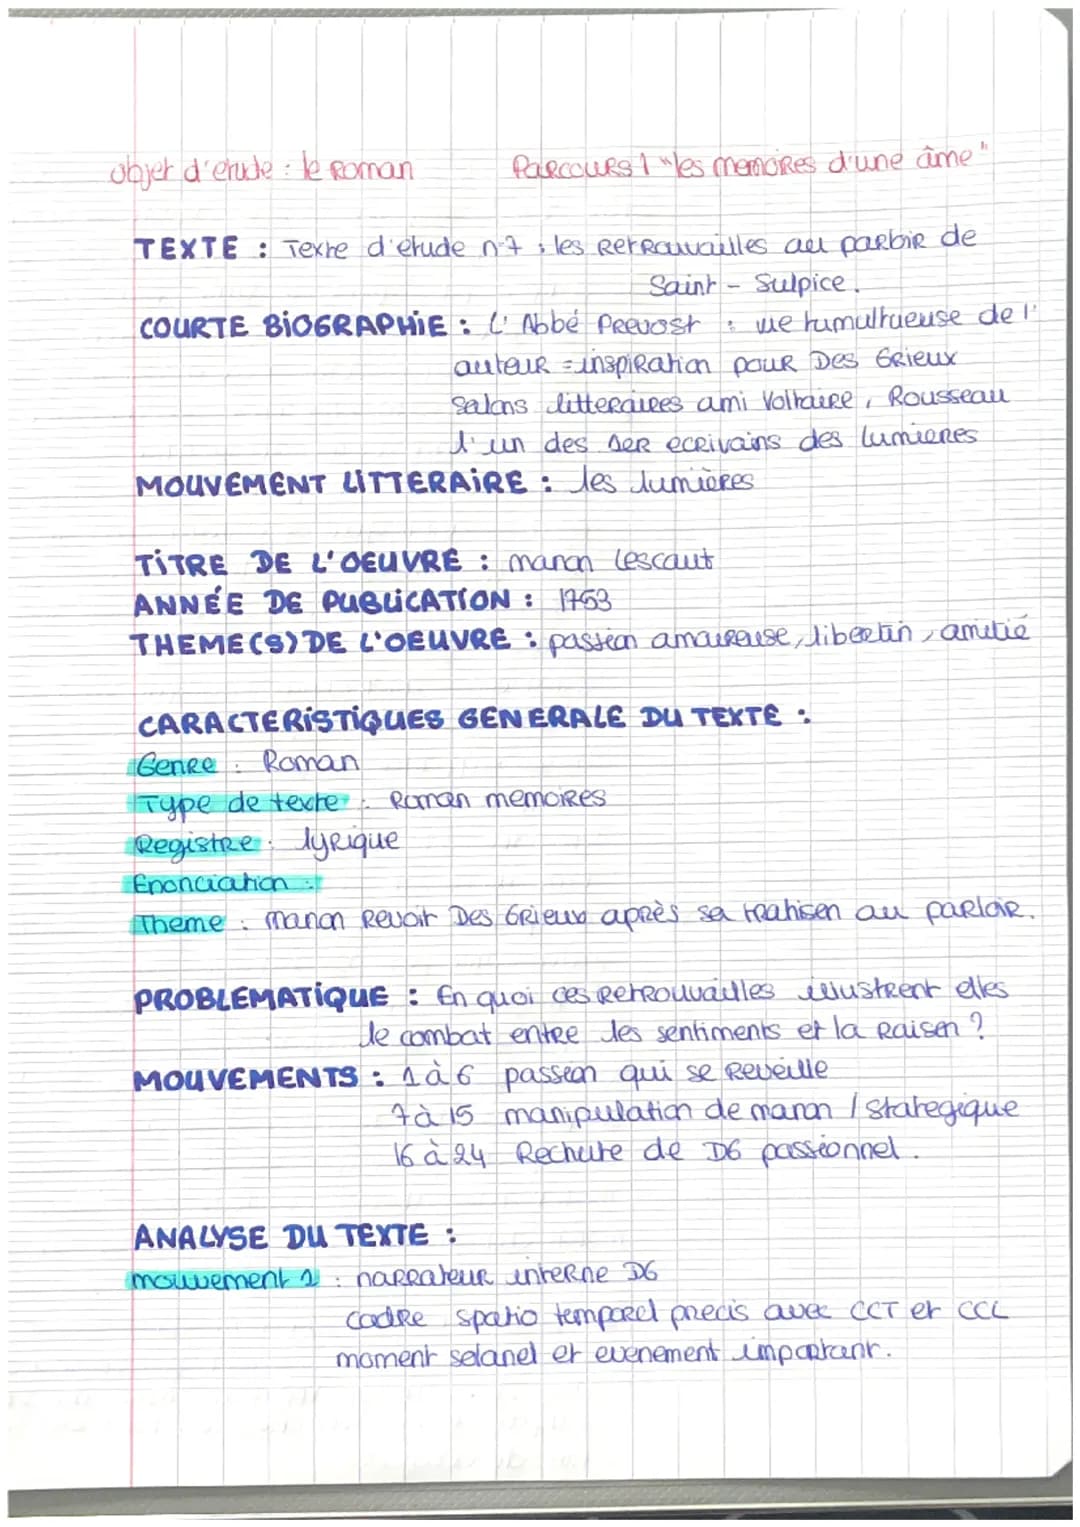 objet d'etude : le Roman Parcours 1 "les memoires d'une âme"
TEXTE : Texte d'etude n°7 : les Retrouvailles au parloir de
Saint - Sulpice.
COURTE BIOGRAPHIE : L'Abbé Prevost : vie tumultueuse de l'
auteur = inspiration pour Des Grieux
salons litteraires ami Voltaire, Rousseau
l'un des 1er ecrivains des lumieres
MOUVEMENT LITTERAIRE : les lumières
TITRE DE L'OEUVRE : manon lescaut
ANNÉE DE PUBLICATION : 1753
THEME(S) DE L'OEUVRE : passion amoureuse, libertin, amitié
CARACTERISTIQUES GENERALE DU TEXTE :
Genre : Roman
Type de texte : Roman memoires
Registre : lyrique
Enonciation :
Theme : manon Revoit Des Grieux après sa trahison au parloir.
PROBLEMATIQUE : En quoi ces retrouvailles illustrent elles
le combat entre les sentiments et la raison ?
MOUVEMENTS : 1 à 6 passion qui se Reveille
7 à 15 manipulation de manon / stategique
16 à 24 Rechute de DG passionnel.
ANALYSE DU TEXTE :
mouvement 1 : narrateur interne DG
cadre spatio temporel precis avec CCT et CCL
moment solanel et evenement important.